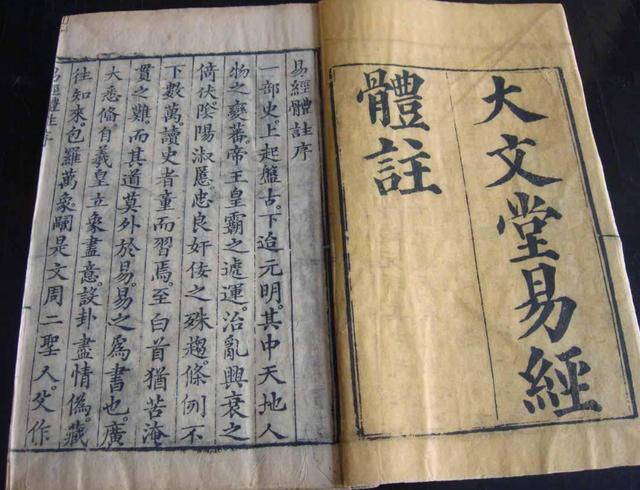 大文堂易經
體註
易經體註序
一部史。上起盤古。下迨元明。其中天地人
物之變蕃。帝王皇霸之遞運。治亂興衰之
倚伏陰陽淑慝。忠良奸佞之殊趨。條例不
下數萬讀史者童而習焉。至白首猶苦淹
貫之難。而其道莫外於易。易之爲書也。廣
大悉備。自羲皇立象盡意。設卦盡情僞。藏
往知來。包羅萬象嗣是文周二聖人。爻作
易經體註序